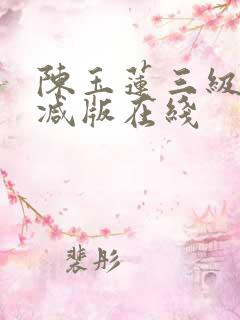 陳玉蓮三級
减版在綫
裴彤